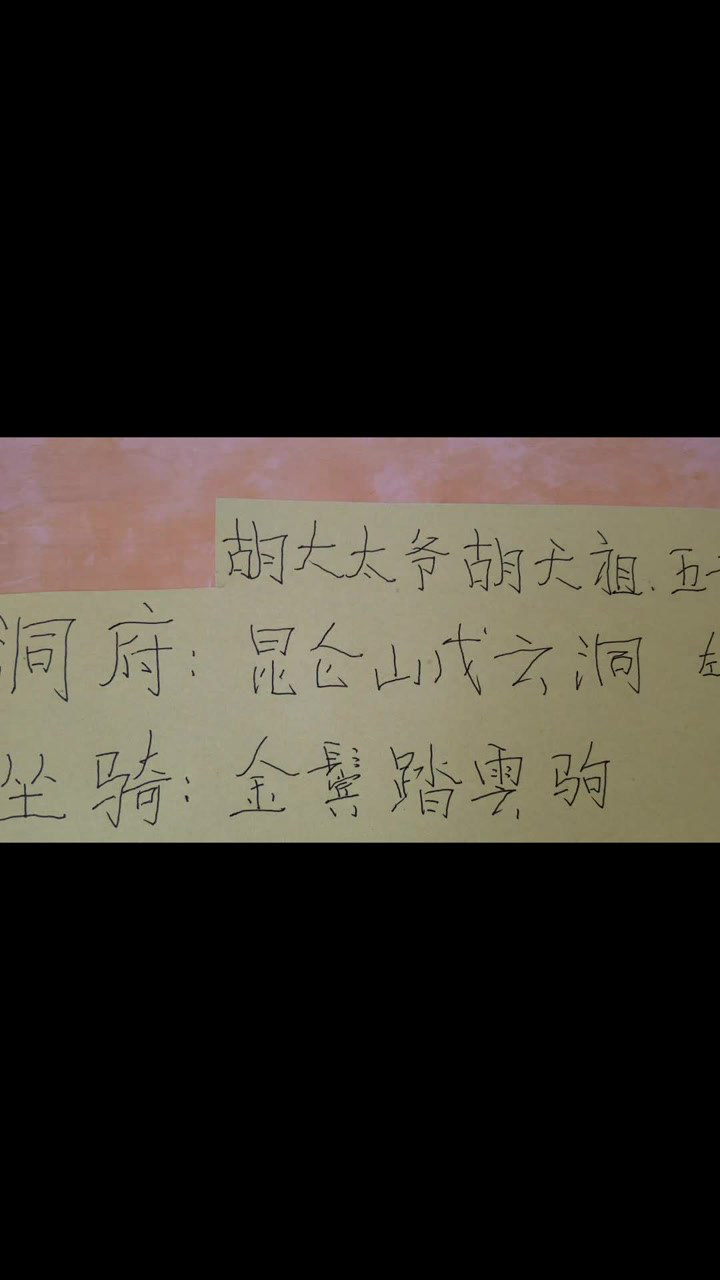 胡大太爷胡天祖.五
洞府:昆仑山戊云洞 左
坐骑:金鬃踏雲驹